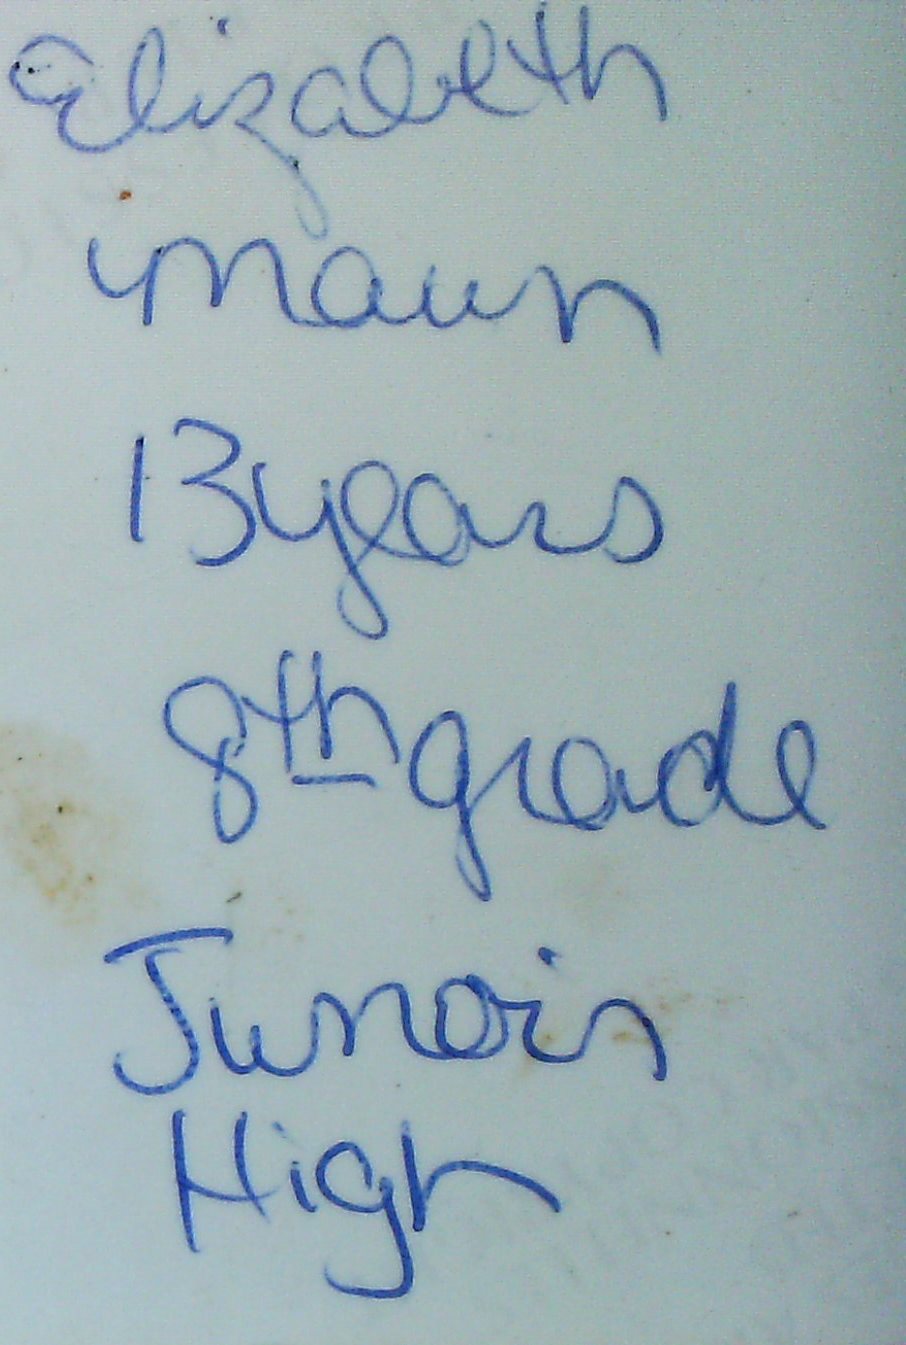 Elizabeth
Maun
13 years
8th grade
Junoir
High